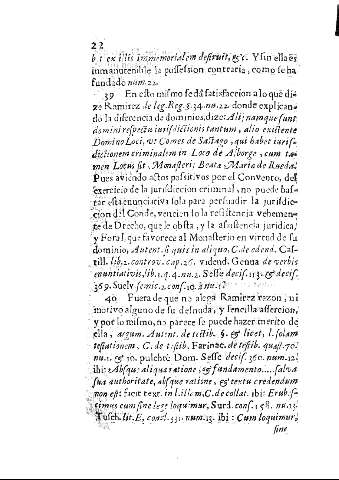 22
b.t ex illis immemorialem destruit, &c. Y sin ella es
inmanutenible la possession contraria, como se ha
fundado num.22.
39 En esto mismo se dà satisfaccion a lo què di-
ze Ramirez de leg. Reg. §.34. nu.22. donde explican-
do la diferencia de dominios, dize: Alij namque sunt
domini respectu iurisdictionis tantum, alio existente
Domino Loci, vt Comes de Sastago, qui habet iuris-
dictionem criminalem in Loco de Alborge, cum ta-
men Locus sit, Monasterij Beatæ Mariæ de Rueda.
Pues aviendo actos positivos por el Convento, del
exercicio de la jurisdiccion criminal, no puede bas-
tar esta enunciativa sola para persuadir la jurisdic-
cion del Conde, vencien lo la resistencia vehemen-
te de Drecho, que le obsta, y la assistencia juridica,
y Foral, que favorece al Monasterio en virtud de su
dominio, Autent. si quis in aliquo, C. de edend. Cas-
till. lib.2. controv. cap.26. vidend. Genua de verbis
enuntiativis, lib.1. q.4. nu.2. Sesse decis.113. & decis.
369. Suelv. semic.2. cons.10. à nu.1.
40 Fuera de que no alega Ramirez razon, ni
motivo alguno de su desnuda, y sencilla assercion,
y por lo mismo, no parece se puede hazer merito de
ella, argum. Autent. de testib. §. & licet, l. solam
testationem, C. de testib. Farinac. de testib. quæst.70.
nu.1. & 10. pulchrè Dom. Sesse decis.360. num.12.
ibi: Absque aliqua ratione, & fundamento.....salva
sua authoritate, absque ratione, & textu credendum
non est: facit text. in l. illam, C. de collat. ibi: Erub.s-
timus cum sine lege loquimur, Surd. cons.158. nu.13.
Tusch. lit. E, concl.331. num.13. ibi: Cum loquimur,
sine